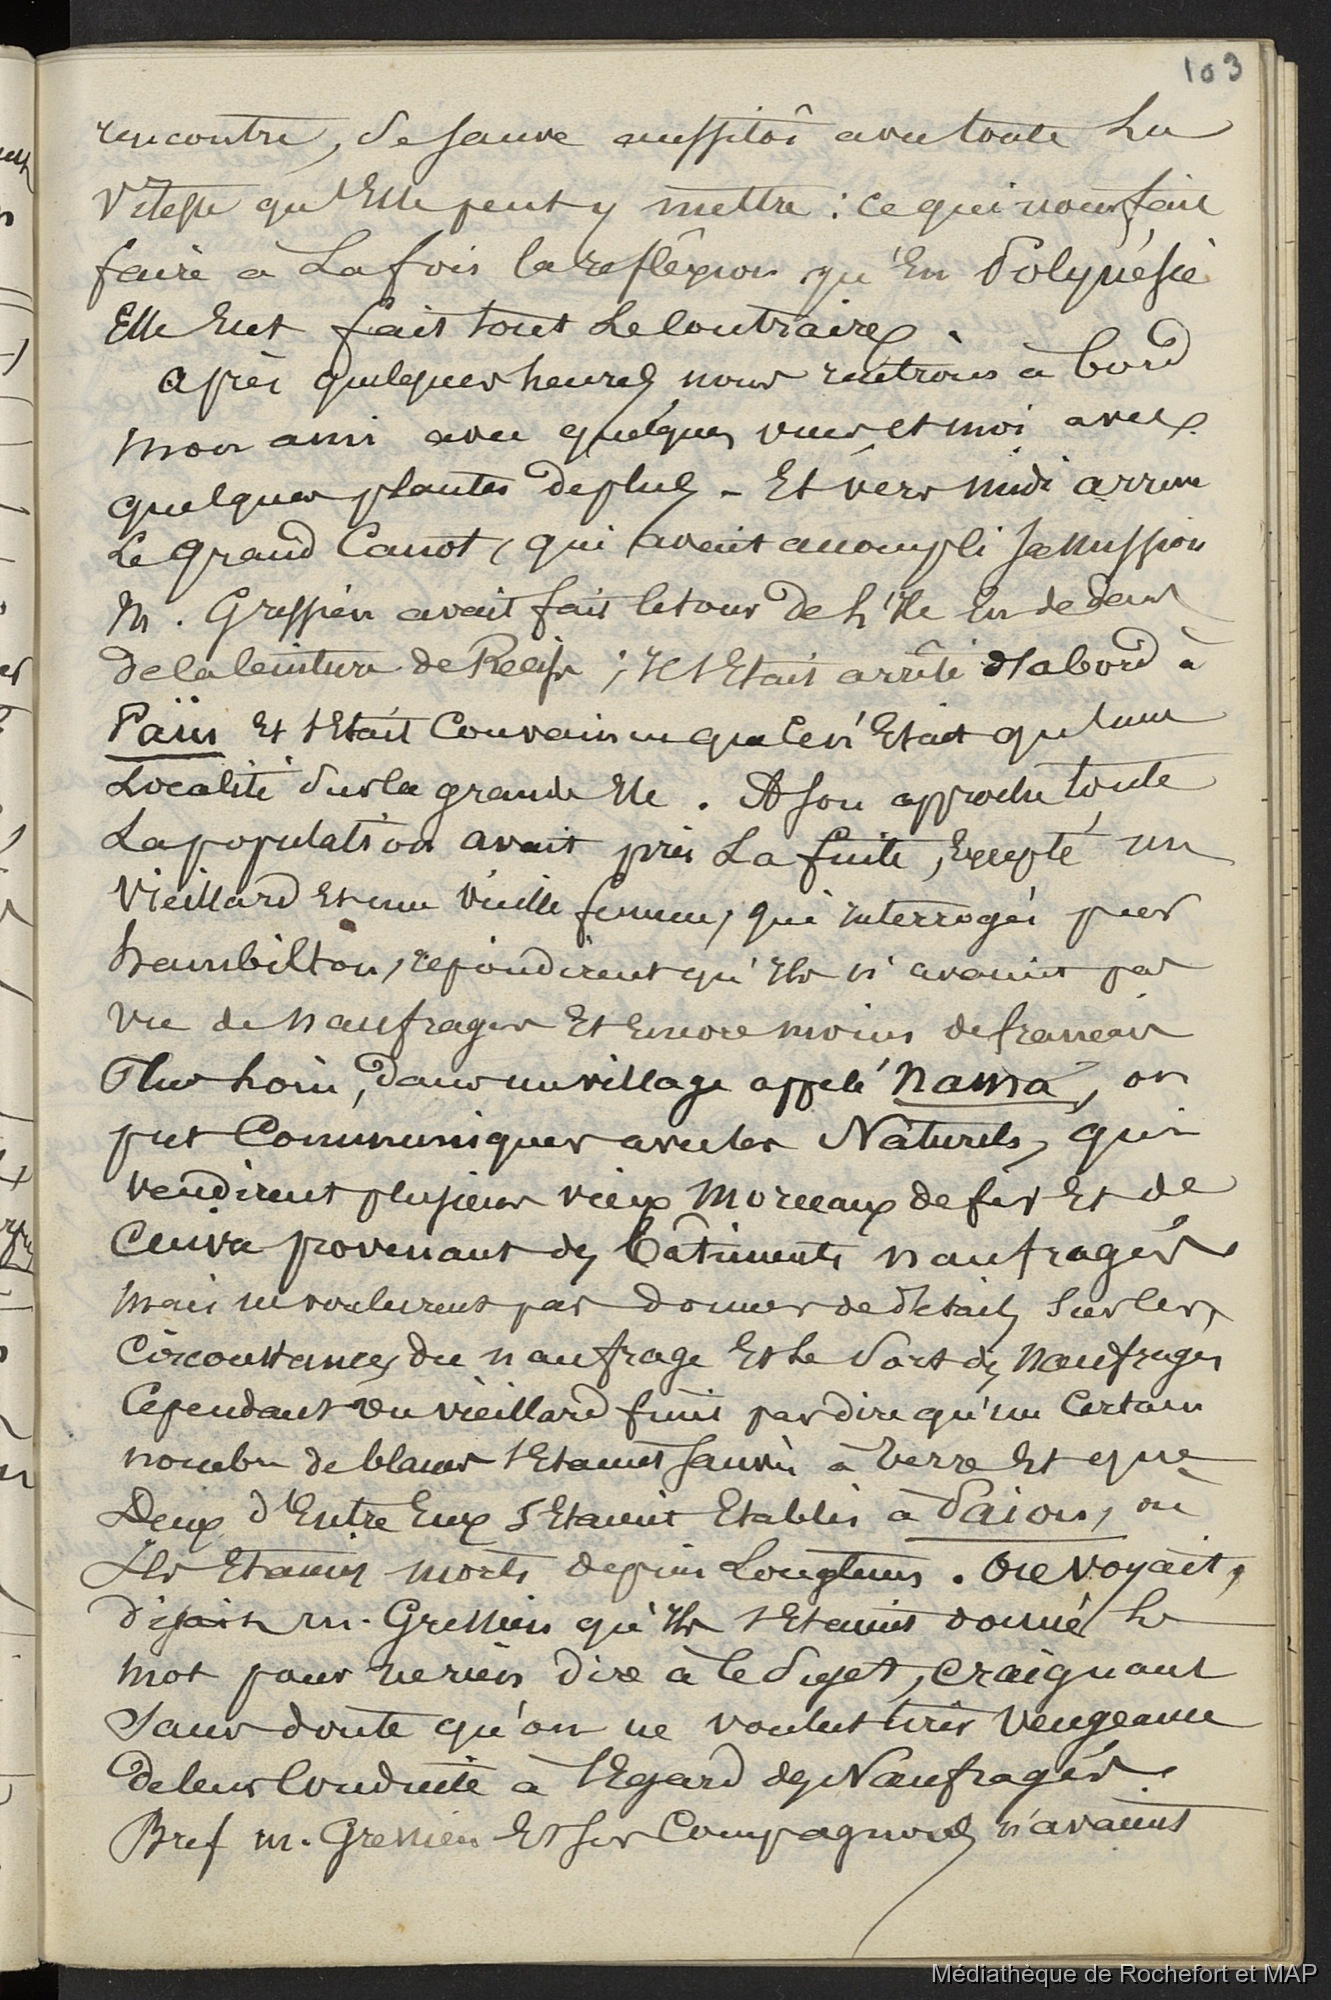 103
rencontre, se sauve aussitôt avec toute la
vitesse qu'Elle peut y mettre : ce qui nous fait
faire à la fois la reflêxion qu'En Polynésie
Elle Eut fait tout le Contraire.
après quelques heures nous rentrons à bord
mon ami avec quelques vues et moi avec
quelques plantes de plus - Et vers midi arriva
Le grand Canot, qui avait accompli sa mission
M. Gressien avait fait le tour de l'Ile En dedans
de la Ceinture de Récifs ; Il s'Etait arrêté d'abord à
Païus Et s'Etait Convaincu que ce n'Etait qu'une
Localité sur la grande Ile. A son approche toute
La population avait pris La fuite, Excepté un
Vieillard Et une vieille femme, qui interrogés par
hambilton, repondirent qu'Ils n'avaient pas
vu de naufragés Et Encore moins de français
Plus Loin, dans un village appelé Nama, on
put Communiquer avec les Naturels, qui
vendirent plusieurs vieux Morceaux de fer Et de
Cuivre provenant des bâtiments naufragés
Mais ne voulurent pas donner de détails sur les
Circonstances du naufrage Et Le Sort des Naufragés
Cependant un vieillard finit par dire qu'un Certain
nombre de blancs s'Etaient sauvés à terre Et que
Deux d'Entre Eux s'Etaient Etablis à Païou, où
Ils Etaient morts depuis Longtems. On voyait,
disait M. Gressien qu'Ils s'Etaient donné le
mot pour ne rien dire à ce Sujet, Craignant
Sans doute qu'on ne voulut tirer Vengeance
de leur Conduite à l'Egard des Naufragés.
Bref M. Gressien Et ses Compagnons n'avaient
Médiathèque de Rochefort et MAP